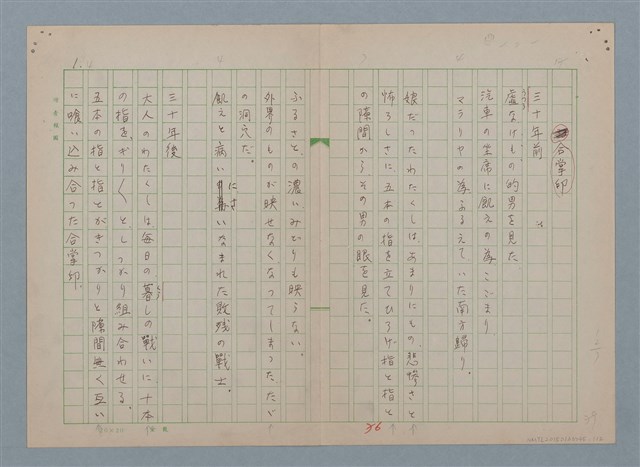 合掌印
三十年前
虚なけもの的男を見た
汽車の坐席に飢えの為こごまり
マラリヤの為ふるえていた南方歸り。
娘だったわたくしは、あまりにもの、悲惨さと
怖ろしさに五本の指を立てひろげ指と指と
の隙間から、その男の眼を見た。
ふるさと、の濃いみどりも映らない。
外界のものが映せなくなってしまったたゞ
の洞穴だ。
飢えと病いにさいなまれた敗残の戦士。
三十年後
大人のわたくしは毎日の、暮しの戦いに十本
の指を、ぎり〱と、しっかり組み合わせる。
五本の指と指とがきっかりと隙間無く互い
に喰い込み合った合掌印。
1.
36